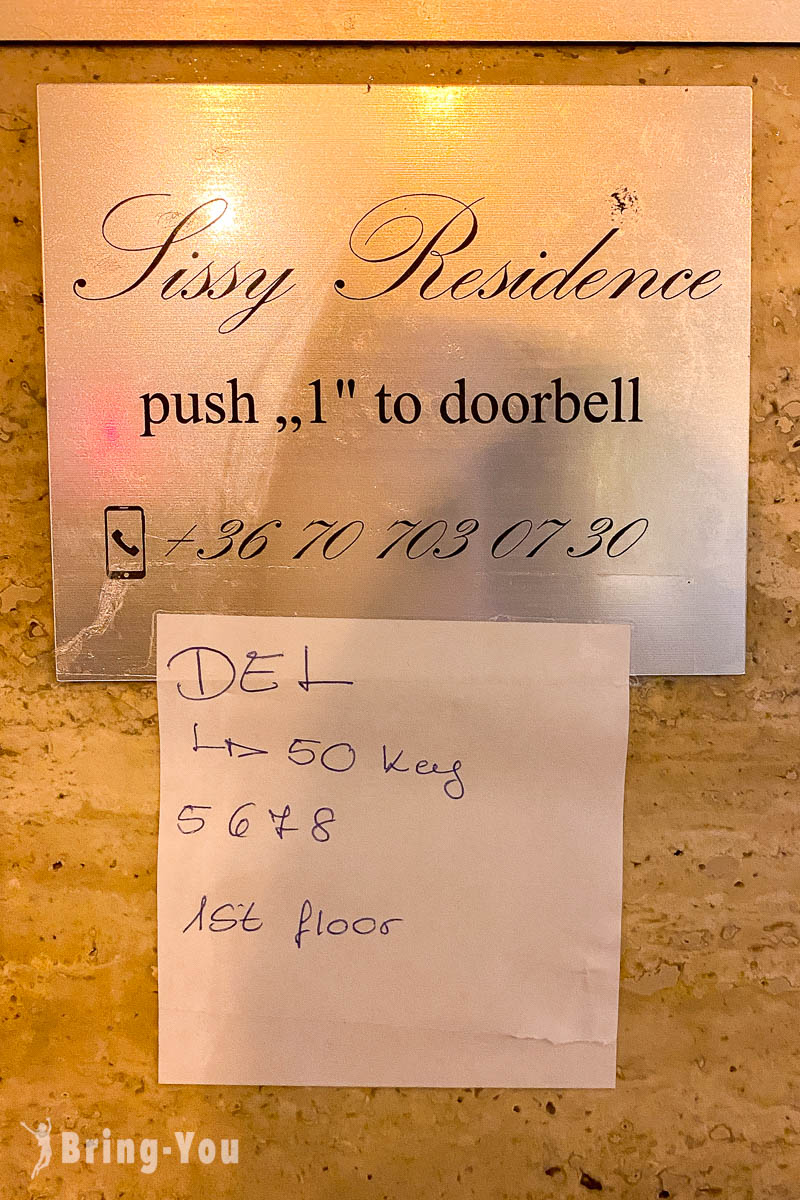 Sissy Residence
push „1" to doorbell
+36 70 703 07 30
DEL
↳ 50 key
5678
1st floor
Bring-You